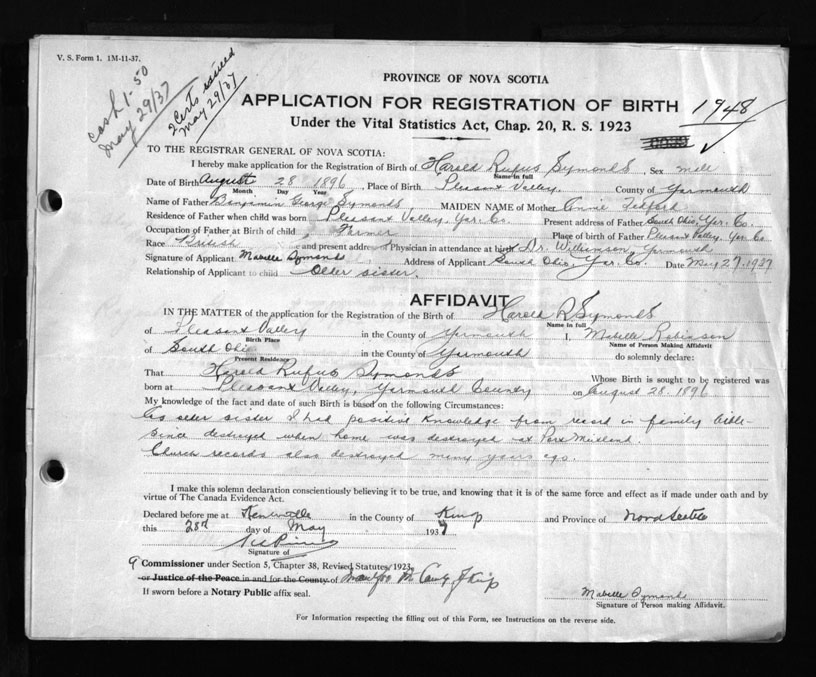 V. S. Form 1. 1M-11-37.
cash 1-50
May 29/37
2 Certs issued
May 29/37
PROVINCE OF NOVA SCOTIA
APPLICATION FOR REGISTRATION OF BIRTH 1948
Under the Vital Statistics Act, Chap. 20, R. S. 1923
TO THE REGISTRAR GENERAL OF NOVA SCOTIA:
I hereby make application for the Registration of Birth of Harold Rufus Symonds, Sex male
Name in full
Date of Birth August 28 1896, Place of Birth Pleasant Valley. County of Yarmouth
Month Day Year
Name of Father Benjamin George Symonds MAIDEN NAME of Mother Annie
Residence of Father when child was born Pleasant Valley, Yar. Co. Present address of Father South Ohio, Yar. Co.
Occupation of Father at Birth of child Farmer Place of birth of Father Pleasant Valley, Yar. Co
Race British and present address Physician in attendance at birth Dr. Williamson, Yarmouth
Signature of Applicant Mabelle Symonds Address of Applicant South Ohio, Yar. Co. Date May 27, 1937
Relationship of Applicant to child Older sister.
AFFIDAVIT
IN THE MATTER of the application for Registration of the Birth of Harold R Symonds
Name in full
of Pleasant Valley in the County of Yarmouth I, Mabelle Robinson
Birth Place Name of Person Making Affidavit
of South Ohio in the County of Yarmouth do solemnly declare:
Present Residence
That Harold Rufus Symonds Whose Birth is sought to be registered was
born at Pleasant Valley, Yarmouth County on August 28, 1896
My knowledge of the fact and date of such Birth is based on the following Circumstances:
As older sister I had positive knowledge from record in family bible-
since destroyed when home was destroyed at Port Maitland.
Church records also destroyed many years ago.
I make this solemn declaration conscientiously believing it to be true, and knowing that it is of the same force and effect as if made under oath and by
virtue of The Canada Evidence Act.
Declared before me at Kentville in the County of Kings and Province of Nova Scotia
this 28th day of May 1937
Signature of
A Commissioner under Section 5, Chapter 38, Revised Statutes, 1923
or Justice of the Peace in and for the County of
If sworn before a Notary Public affix seal.
Mabelle Symonds
Signature of Person making Affidavit.
For Information respecting the filling out of this Form, see Instructions on the reverse side.